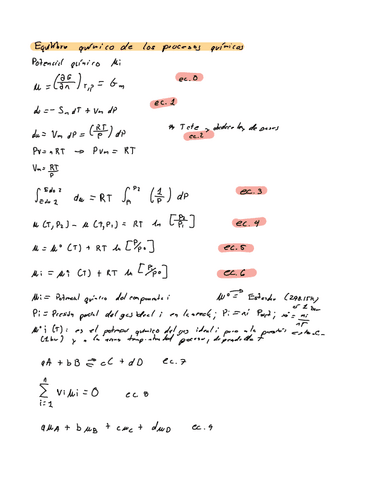 Equilibrio químico de los procesos químicos
Potencial químico μi
μ = (∂G/∂n)T,P = Gm ec.0
dμ = - Sm dT + Vm dP ec.1
dμ = Vm dP = (RT/P) dP * Tcte, de gases ec.2
PV = nRT → PVm = RT
Vm = RT/P
∫ Edo 2 Edo 1 dμ = RT ∫ P2 P1 (1/P) dP ec.3
μ (T, P2) - μ (T, P1) = RT ln [P2/P1] ec.4
μ = μ° (T) + RT ln [P/P°] ec.5
μi = μi° (T) + RT ln [Pi/P°] ec.6
μi = Potencial químico del componente i μ° = Estandar (298.15K)
Pi = Presión parcial del gas ideal i en la mezcla; Pi = ni ni/nT
μ°i (T): es el potencial químico del gas ideal i puro a la presión
(1 bar) y a la misma temperatura del T
aA + bB ⇌ cC + dD ec.7
Σ i=1 νi μi = 0 ec.8
aμA + bμB + cμC + dμD ec.9